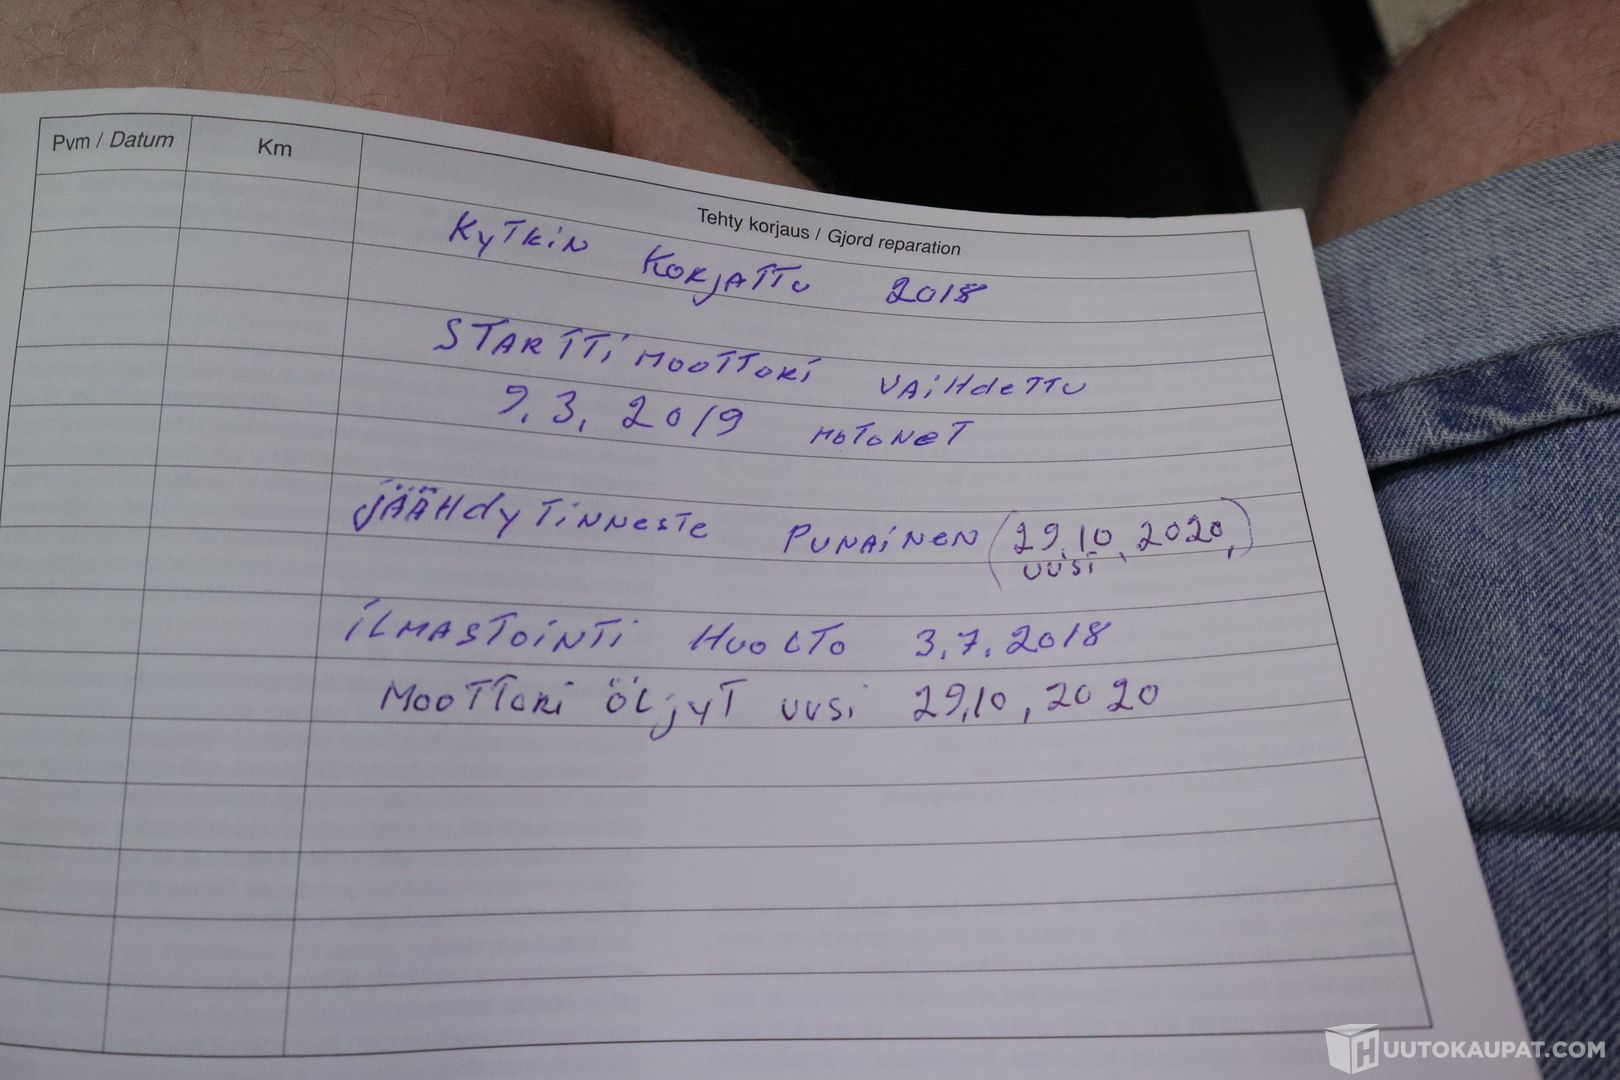 Pvm / Datum
Km
Tehty korjaus / Gjord reparation
KyTKiN KORjATTU 2018
STARTTiMOOTTORi VAiHdeTTU
9.3.2019 MOTONeT
jÄÄHdyTiNNeSTe PUNAiNeN (29.10.2020.)
UUSi
iLMASTOiNTi HUOLTO 3.7.2018
MOOTTORi ÖLjyT UUSi 29.10.2020
HUUTOKAUPAT.COM